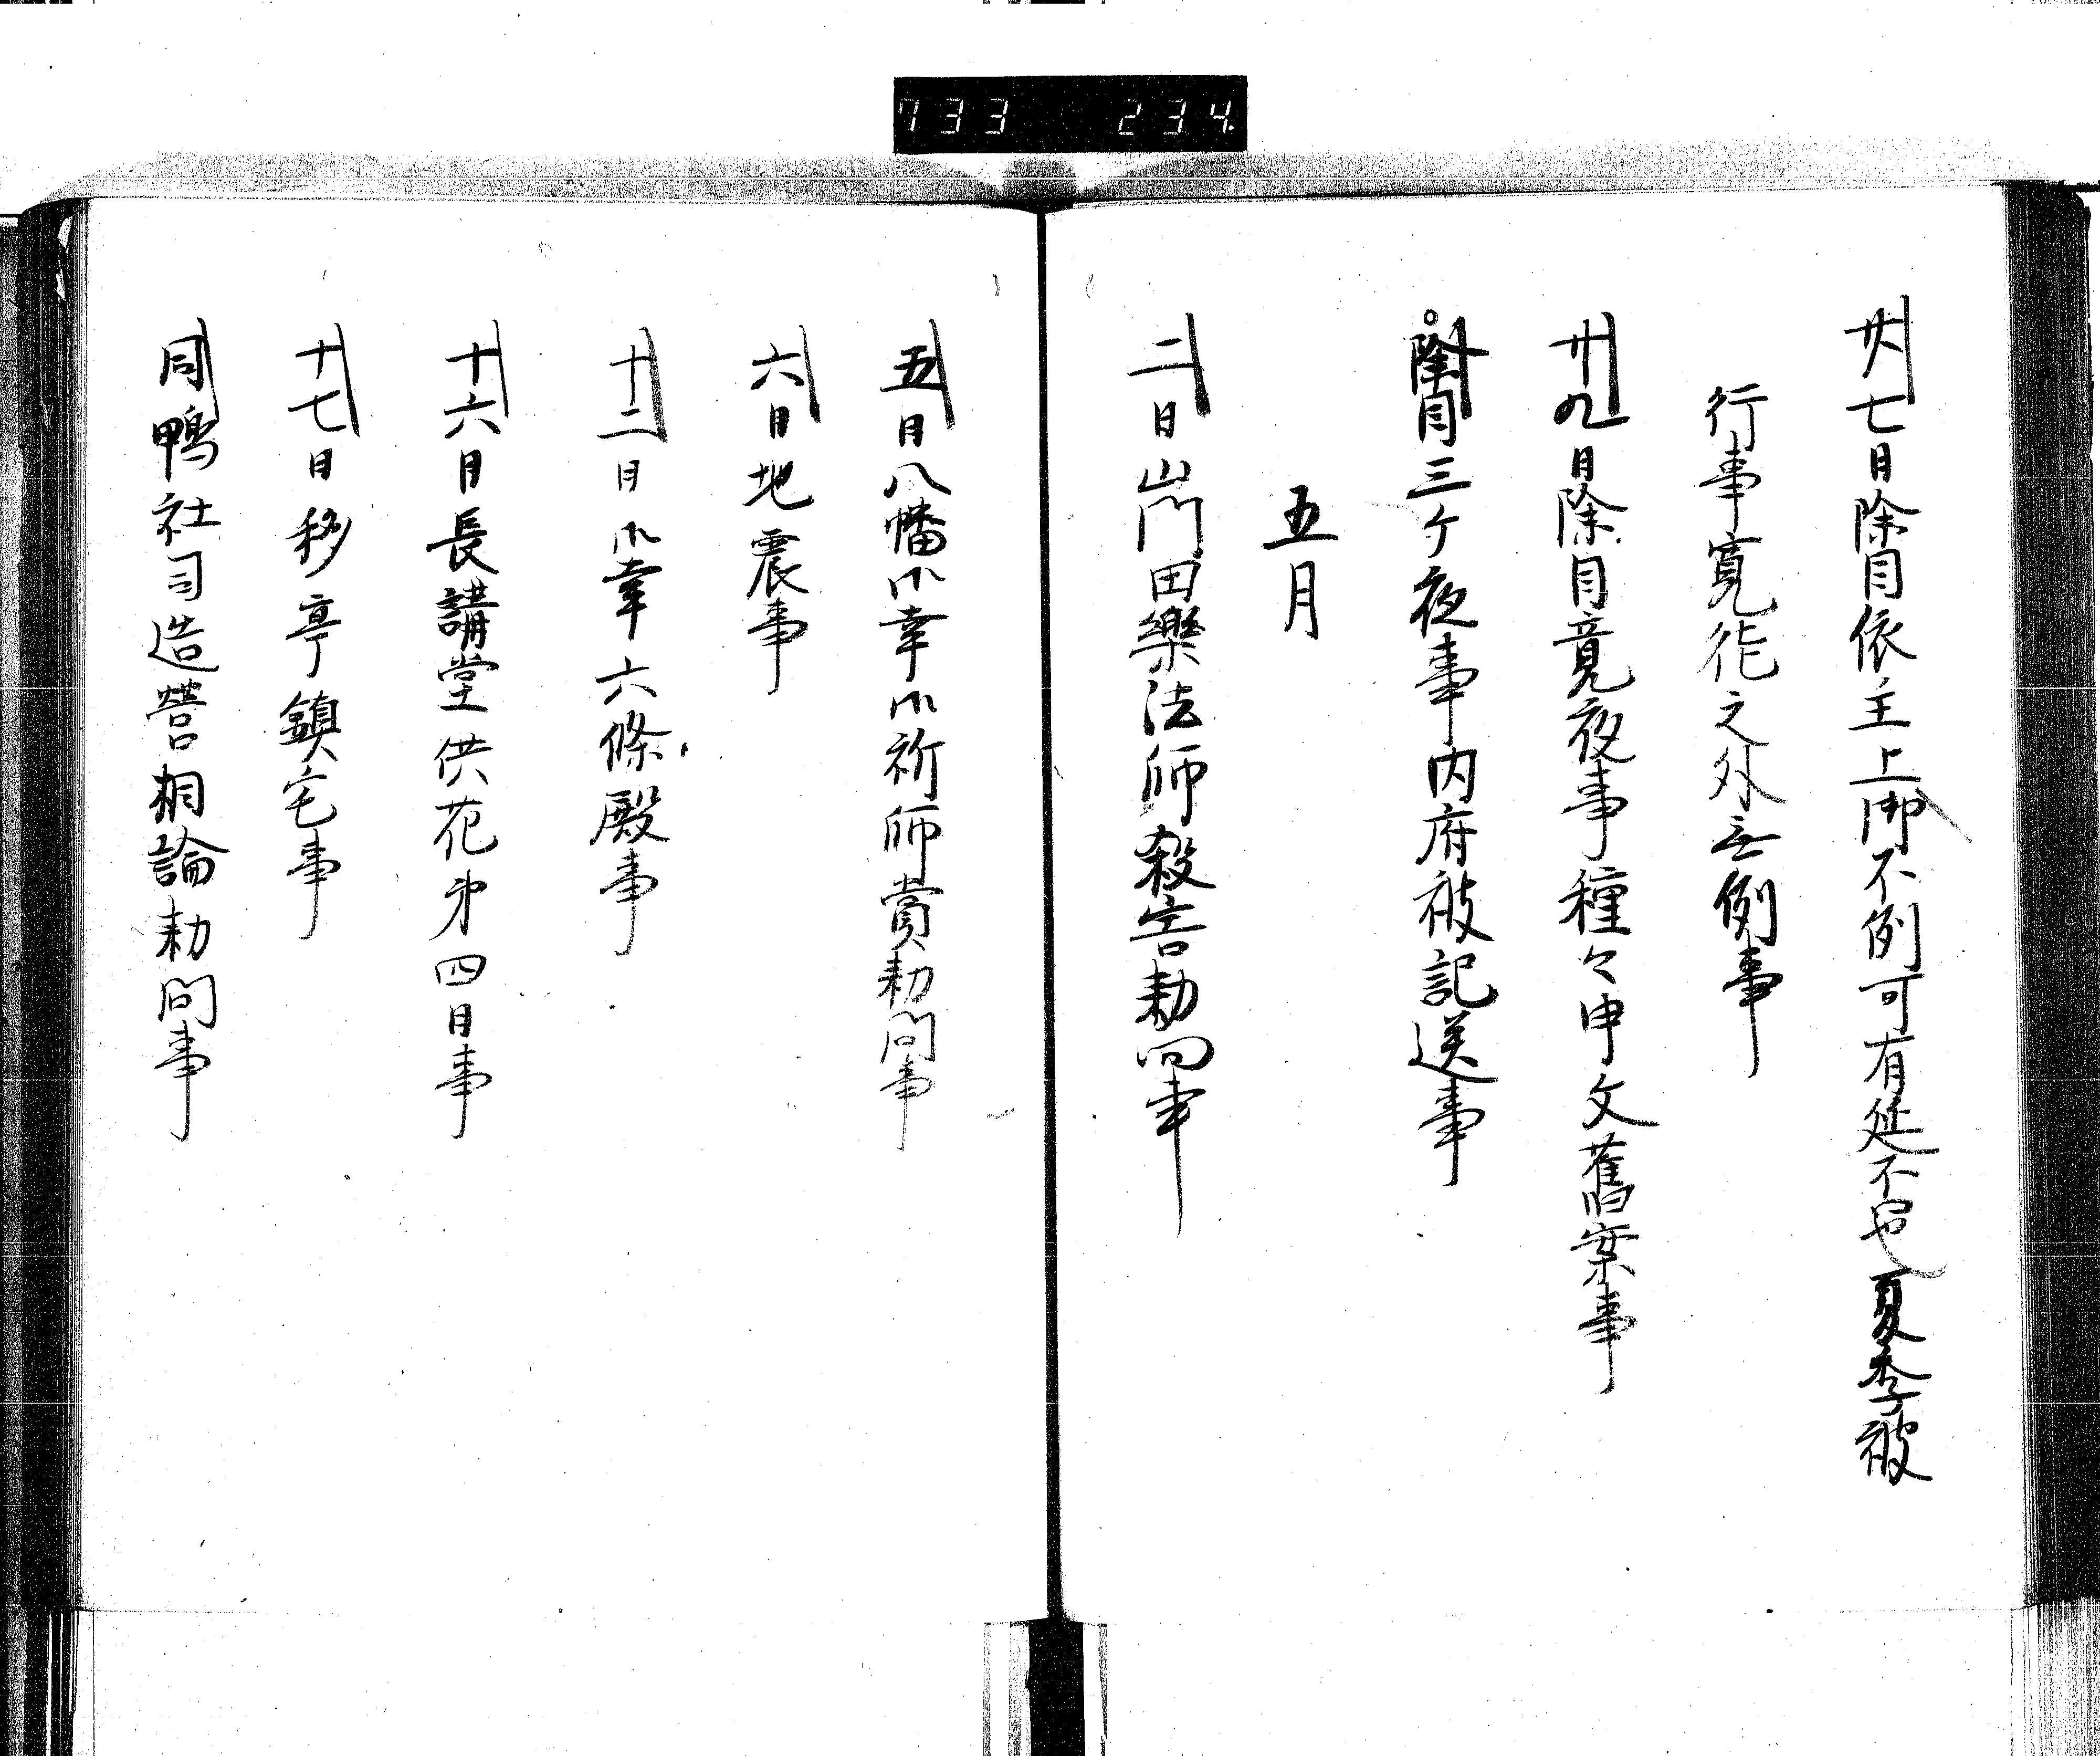 733 234
廿七日除目依主上御不例可有延不也夏季被
行事寛徳之外無例事
廿九日除目竟夜事種々申文舊案事
除目三ケ夜事内府被記送事
五月
二日山門田樂法師殺害勅問事
五日八幡御幸御祈師賞勅問事
六日地震事
十二日御幸六條殿事
十六日長講堂供花第四日事
十七日移亭鎮宅事
同鴨社司造營相論勅問事